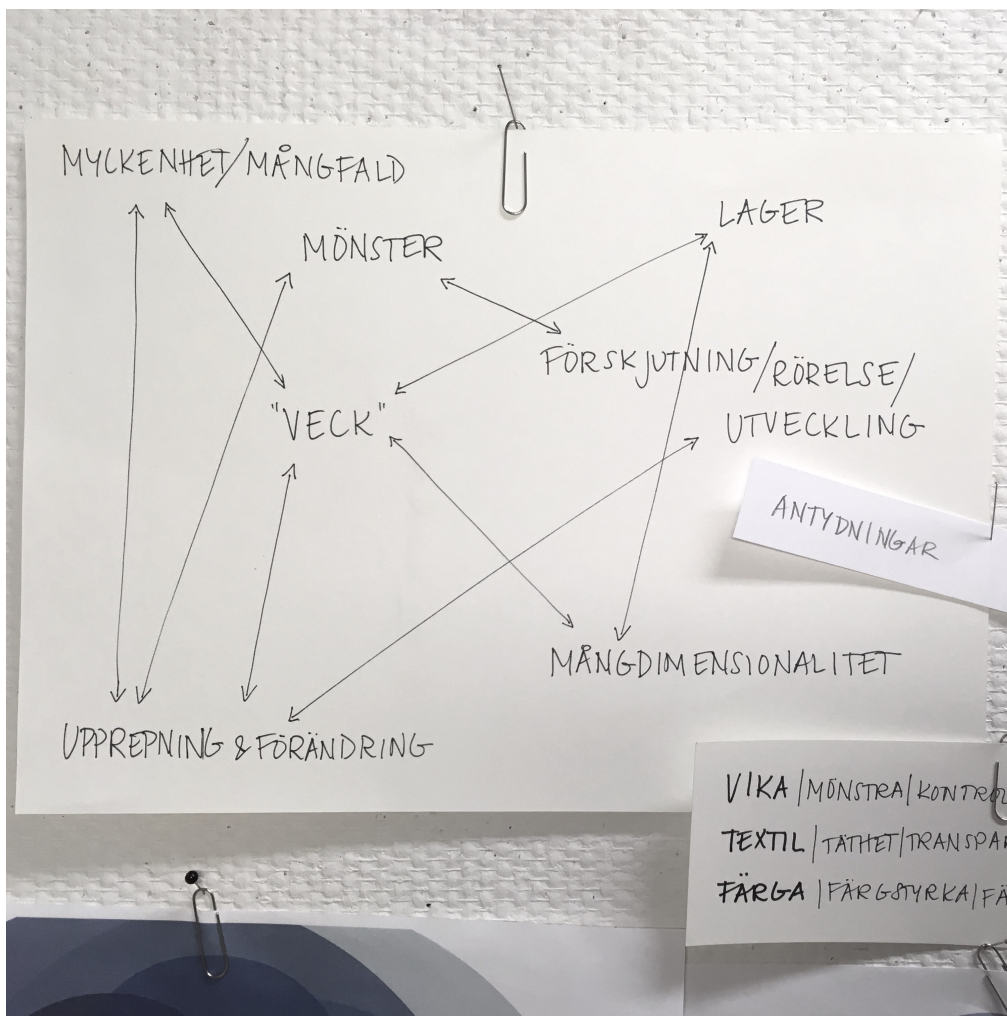 MYCKENHET/MÅNGFALD
LAGER
MÖNSTER
FÖRSKJUTNING/RÖRELSE/
UTVECKLING
"VECK"
ANTYDNINGAR
MÅNGDIMENSIONALITET
UPPREPNING & FÖRÄNDRING
VIKA/MÖNSTRA/KONTROL
TEXTIL/TÄTHET/TRANSPA
FÄRGA/FÄRGSTYRKA/FÄ